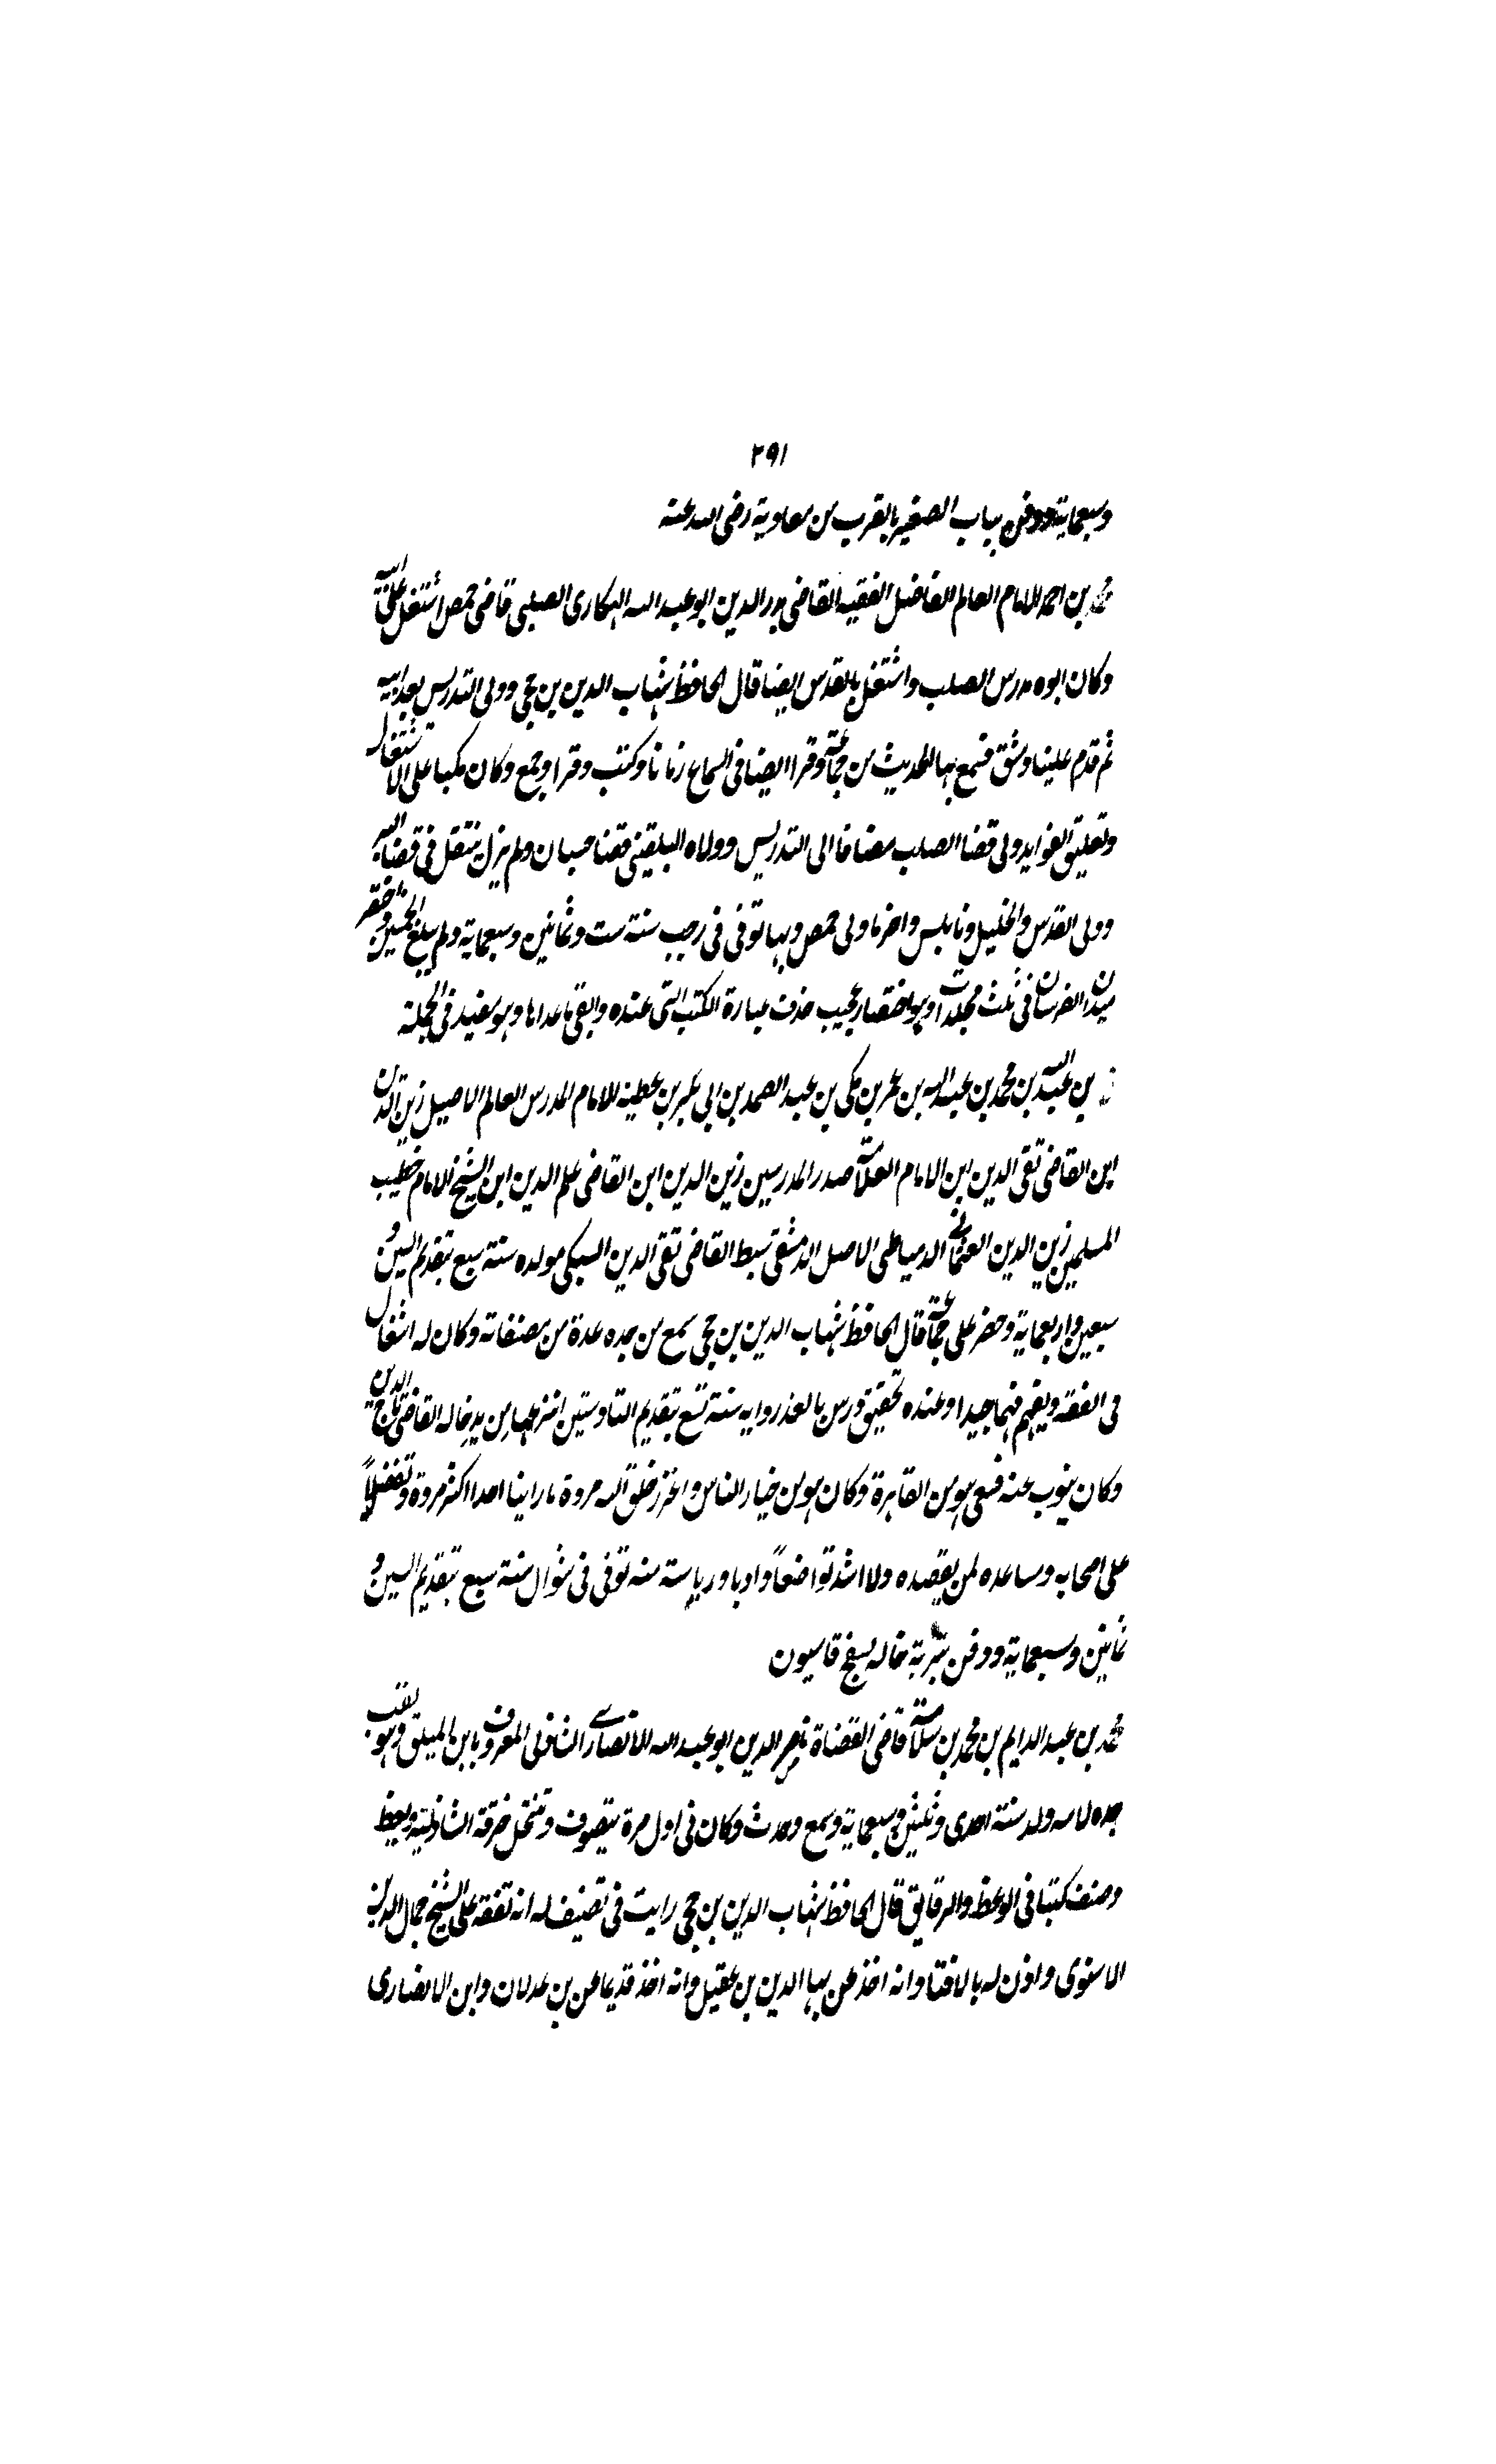 ٢٩١
وسبعماية ودفن بباب الصغير بالقرب من معاوية رضى الله عنه
محمد بن احمد الامام العالم الفاضل الفقيه القاضى بدر الدين ابو عبد الله الهكارى الصلبى قاضى حمص اشتغل على ابيه
وكان ابوه مدرس الصلب واشتغل بالقدس ايضا قال الحافظ شهاب الدين بن حجى وولى التدريس بعد ابيه
ثم قدم علينا دمشق فسمع بها الحديث من جماعة وقرا ايضا فى السماع زمانا وكتب وقرا وجمع وكان مكبا على الاشتغال
وتعليق الفوايد ولى قضا الصلب مضافا الى التدريس وولاه البلقينى قضا حسبان ولم يزل ينتقل فى قضا البر
وولى القدس والخليل ونابلس واخر ما ولى حمص وبها توفى فى رجب سنة ست وثمانين وسبعماية ولم يبلغ الخمسين واختصر
ميدان الفرسان فى ثلث مجلدات وهو اختصار عجيب حذف عبارة الكتب التى عنده وابقى ما عداها وهو مفيد فى الجملة
بن عبد الله بن محمد بن عبد الله بن عمر بن مكى بن عبد الصمد بن ابى بكر بن عطية الامام المدرس العالم الاصيل زين الدين
ابن القاضى تقى الدين ابن الامام العلامة صدر المدرسين زين الدين ابن القاضى علم الدين ابن الشيخ الامام خطيب
المسلمين زين الدين العثمانے الدمياطى الاصل الدمشقى سبط القاضى تقى الدين السبكى مولده سنة سبع بتقديم السين و
سبعين واربعماية وحضر على جماعة قال الحافظ شهاب الدين بن حجى سمع من جده عدة من مصنفاته وكان له اشتغال
فى الفقه ويفهم فهما جيدا وعنده تحقيق درس بالعذراويه سنة تسع بتقديم التا وستين انتزعها من يد خاله القاضى تاج الدين
وكان ينوب عنه فسعى هو من القاهرة وكان هو من خيار الناس واعزز خلق الله مروة ما راينا احدا اكثر مروة وتفضلاً
على اصحابه ومساعده لمن يقصده ولا اشد تواضعاً وادبا ورياسة منه توفى فى شوال سنة سبع بتقديم السين و
ثمانين وسبعماية ودفن بتربة خاله بسفح قاسيون
محمد بن عبد الدايم بن محمد بن سلامة قاضى القضاة ناصر الدين ابو عبد الله الانصارے الشاذلى المعروف بابن الميلق وهو لقب
جده لامه ولد سنة احدى وثلثين وسبعماية وسمع وحدث وكان فى اول مرة يتصوف وتنتحل خرقة الشاذلية ويعظ
وصنف كتبا فى الوعظ والرقايق قال الحافظ شهاب الدين بن حجى رايت فى تصنيف له انه تفقه على الشيخ جمال الدين
الاسنوى واذن له بالافتا وانه اخذ عن بها الدين بن عقيل وانه اخذ قديما عن بن عدلان وابن الانصارى